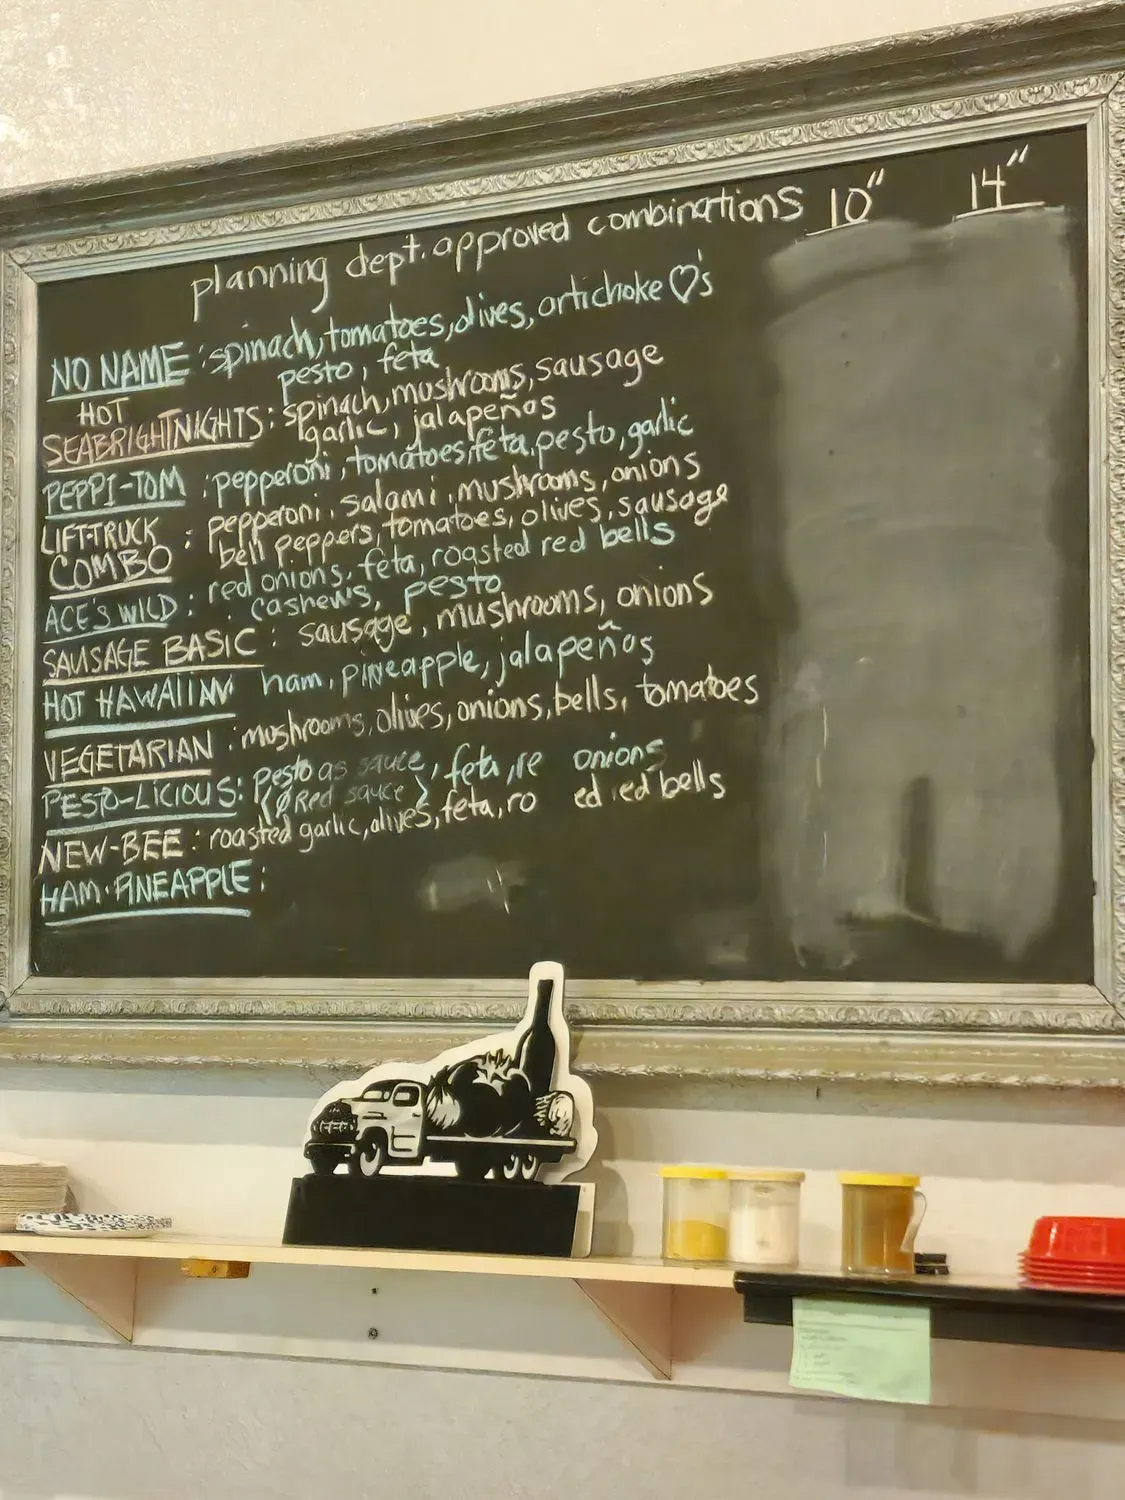 planning dept. approved combinations 10" 14"
NO NAME : spinach, tomatoes, olives, artichoke ♡'s
pesto, feta
HOT
SEABRIGHTNIGHTS : spinach, mushrooms, sausage
garlic, jalapeños
PEPPI-TOM : pepperoni, tomatoes, feta, pesto, garlic
LIFT-TRUCK
COMBO : pepperoni, salami, mushrooms, onions
bell peppers, tomatoes, olives, sausage
ACE'S WILD : red onions, feta, roasted red bells
cashews, pesto
SAUSAGE BASIC : sausage, mushrooms, onions
HOT HAWAIIAN ham, pineapple, jalapeños
VEGETARIAN : mushrooms, olives, onions, bells, tomatoes
PESTO-LICIOUS : pesto as sauce, feta, re onions
{ø Red sauce}
NEW-BEE : roasted garlic, olives, feta, ro ed ed bells
HAM·PINEAPPLE :